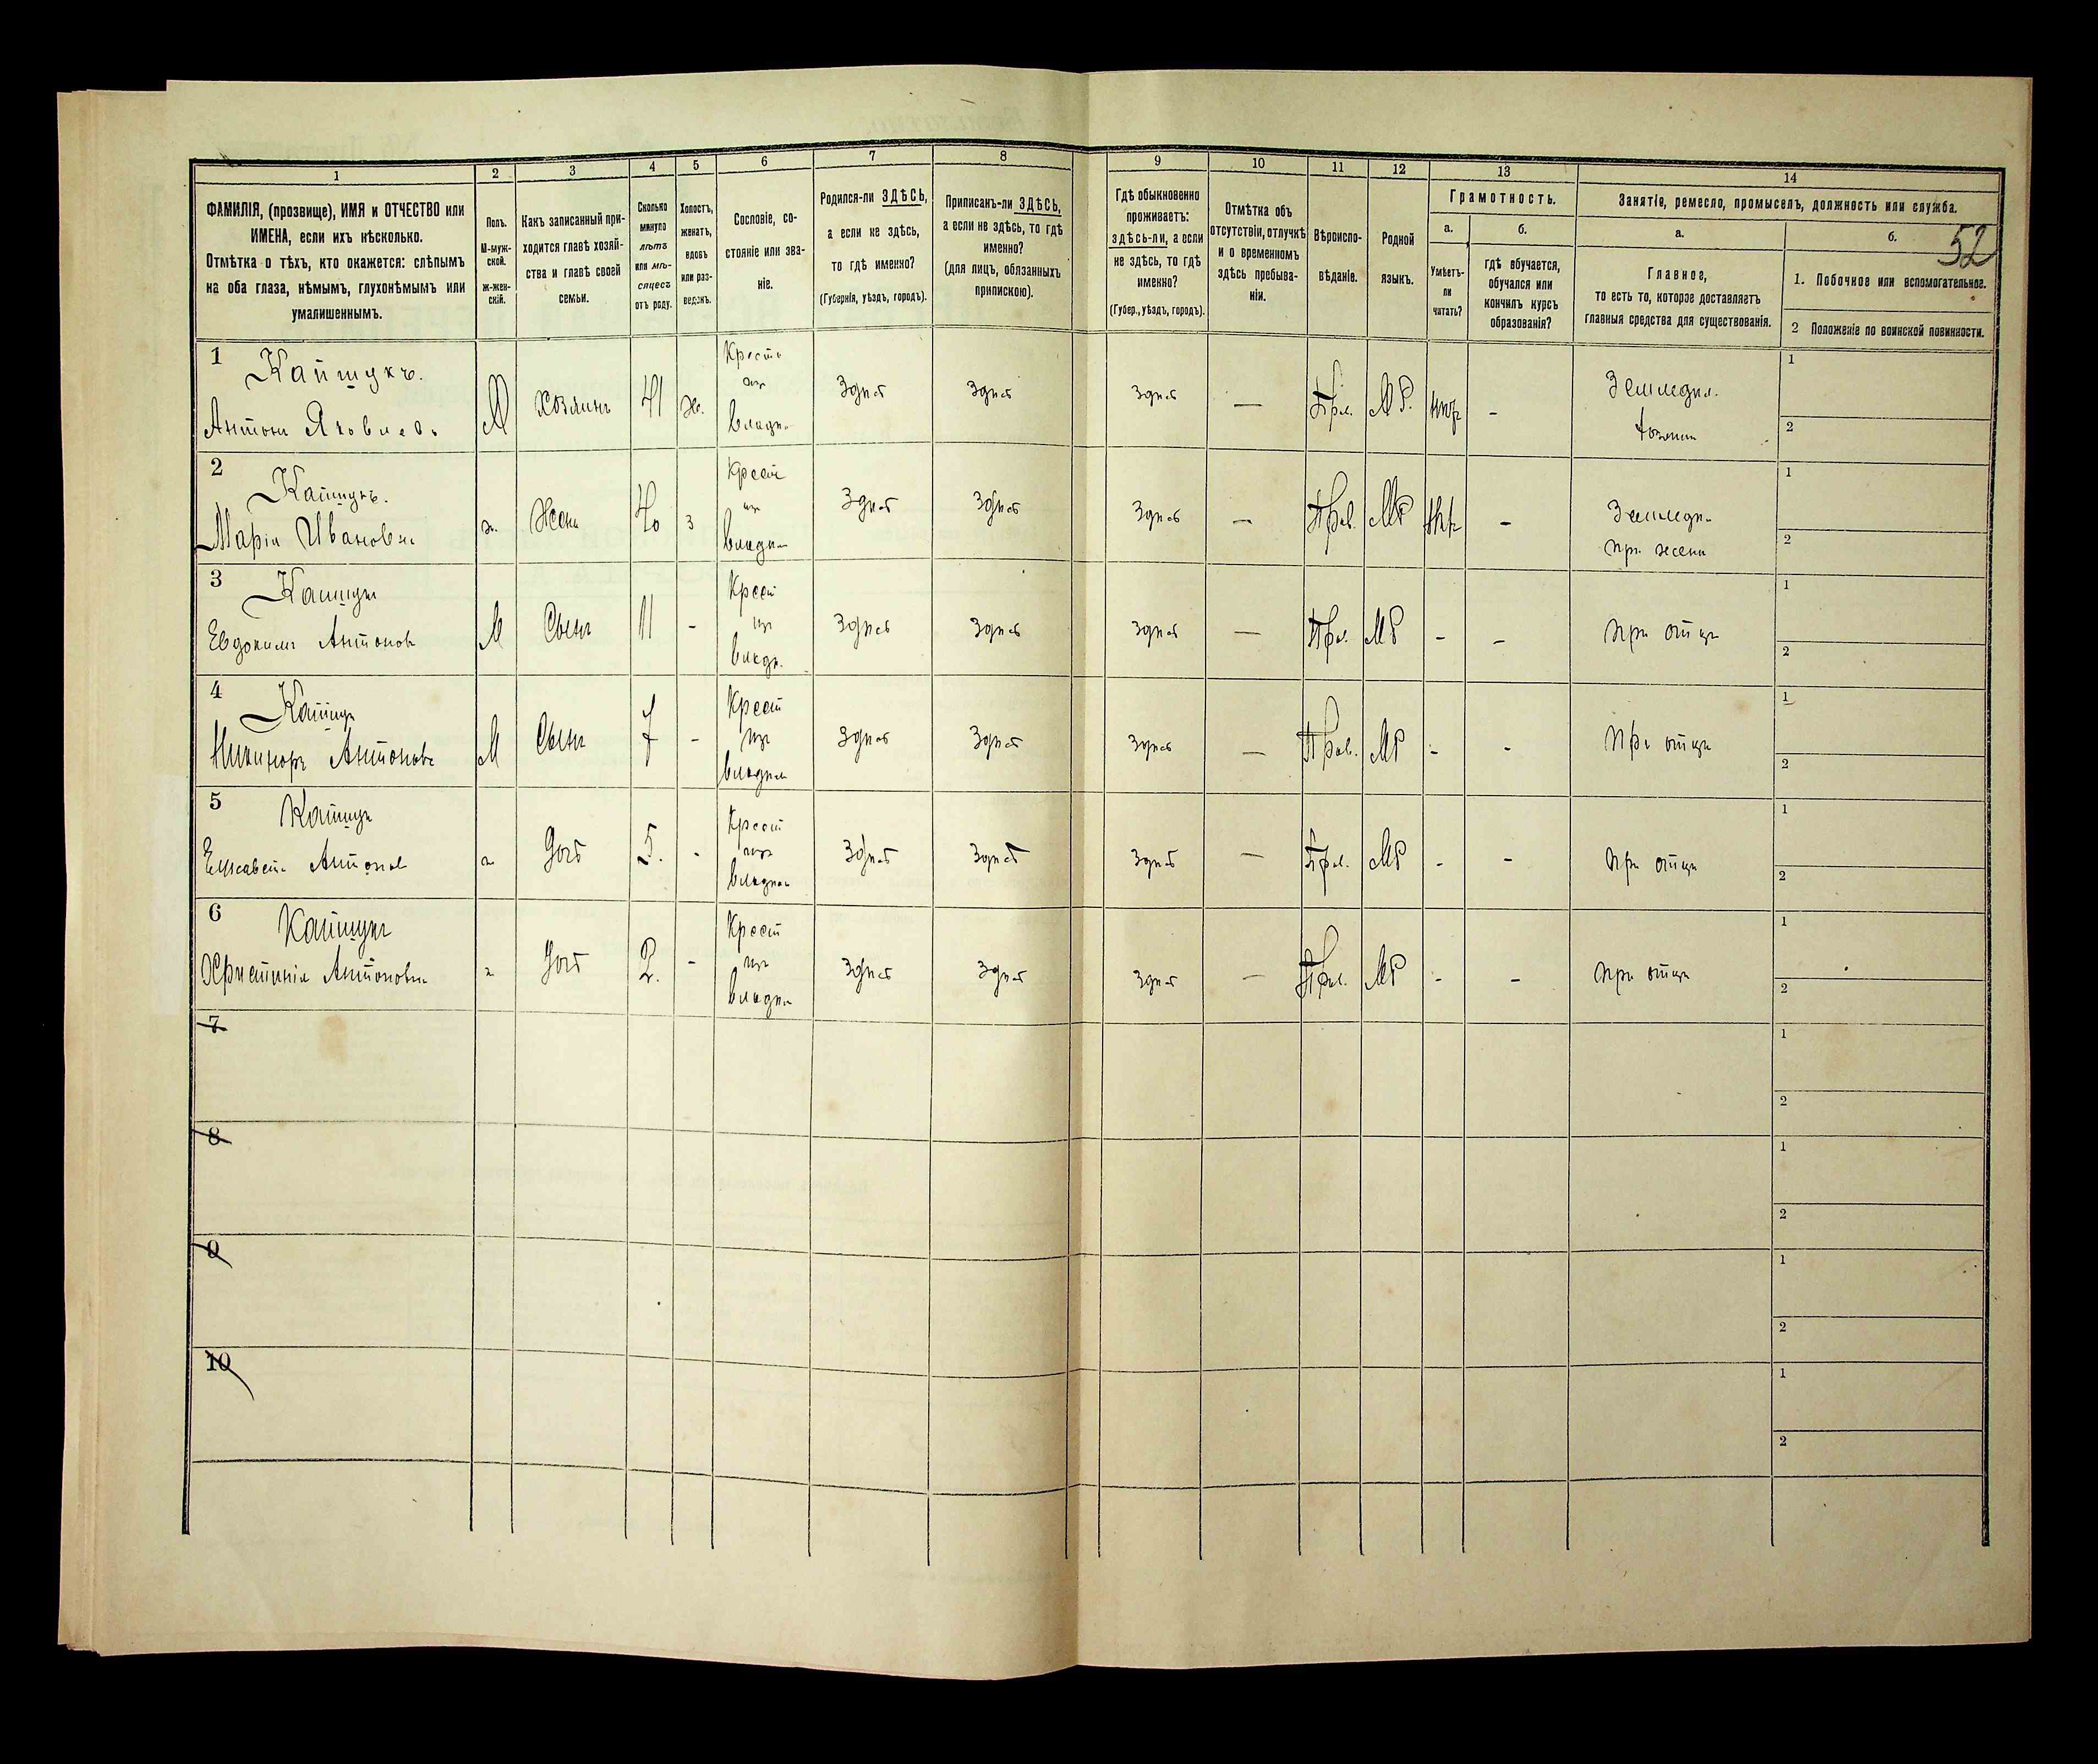 1
2
3
4
5
6
7
8
ФАМИЛІЯ, (прозвище), ИМЯ и ОТЧЕСТВО или
ИМЕНА, если ихъ нѣсколько.
Отмѣтка о тѣхъ, кто окажется: слѣпымъ
на оба глаза, нѣмымъ, глухонѣмымъ или
умалишеннымъ.
Полъ.
М-муж-
ской.
Ж-жен-
скій.
Какъ записанный при-
ходится главѣ хозяй-
ства и главѣ своей
семьи.
Сколько
минуло
лѣтъ
или мѣ-
сяцевъ
отъ роду.
Холостъ,
женатъ,
вдовъ
или раз-
веденъ.
Сословіе, со-
стояніе или зва-
ніе.
Родился-ли ЗДѢСЬ,
а если не здѣсь,
то гдѣ именно?
(Губернія, уѣздъ, городъ).
Приписанъ-ли ЗДѢСЬ,
а если не здѣсь, то гдѣ
именно?
(для лицъ, обязанныхъ
припискою).
9
10
11
12
13
14
Гдѣ обыкновенно
проживаетъ:
здѣсь-ли, а если
не здѣсь, то гдѣ
именно?
(Губер., уѣздъ, городъ).
Отмѣтка объ
отсутствіи, отлучкѣ
и о временномъ
здѣсь пребыва-
ніи.
Вѣроиспо-
вѣданіе.
Родной
языкъ.
Грамотность.
а.
Умѣетъ-
ли
читать?
б.
гдѣ обучается,
обучался или
кончилъ курсъ
образованія?
Занятіе, ремесло, промыселъ, должность или служба.
а.
Главное,
то есть то, которое доставляетъ
главныя средства для существованія.
б.
52
1. Побочное или вспомогательное.
2 Положеніе по воинской повинности.
1
Антонъ Яковлев
М
Хозяинъ
41
Ж.
Крест
из
владѣ
Здѣсь
Здѣсь
Здѣсь
—
Прв.
МР.
нѣтъ
-
Земледѣл.
1
2
2
Марія Ивановна
ж.
Жена
40
з
Крест
из
владѣл
Здѣсь
Здѣсь
Здѣсь
—
Прав.
МР
нѣтъ
-
Земледѣ
1
2
3
Евдокимъ Антоновъ
М
Сынъ
11
-
Крест
из
владѣ.
Здѣсь
Здѣсь
Здѣсь
—
Прв.
МР
-
-
при отцѣ
1
2
4
Никифоръ Антоновъ
М
Сынъ
7
-
Крест
из
владѣл
Здѣсь
Здѣсь
Здѣсь
—
Прав.
МР
-
-
При отцѣ
1
2
5
Елисавета Антонов
ж
Дочь
5.
-
Крест
из
владѣл
Здѣсь
Здѣсь
Здѣсь
—
Прв.
МР
-
-
при отцѣ
1
2
6
Христинія Антоновна
ж
Дочь
2.
-
Крест
из
владѣл
Здѣсь
Здѣсь
Здѣсь
—
Прв.
МР
-
-
при отцѣ
1
2
7
1
2
8
1
2
9
1
2
10
1
2